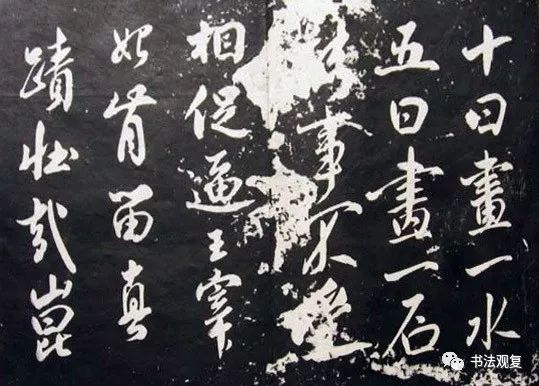 十日畫一水
五日畫一石
能事不受
相促逼王宰
始肯留真
蹟壯哉崑
书法观复